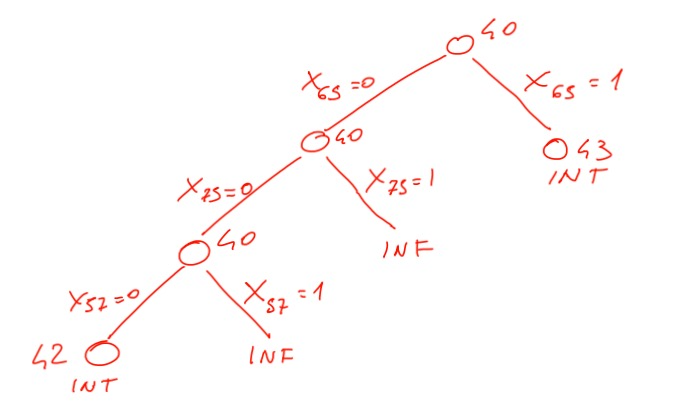 40
X65=0
X65=1
40
43
INT
X75=0
X75=1
40
INF
X57=0
X57=1
42
INF
INT